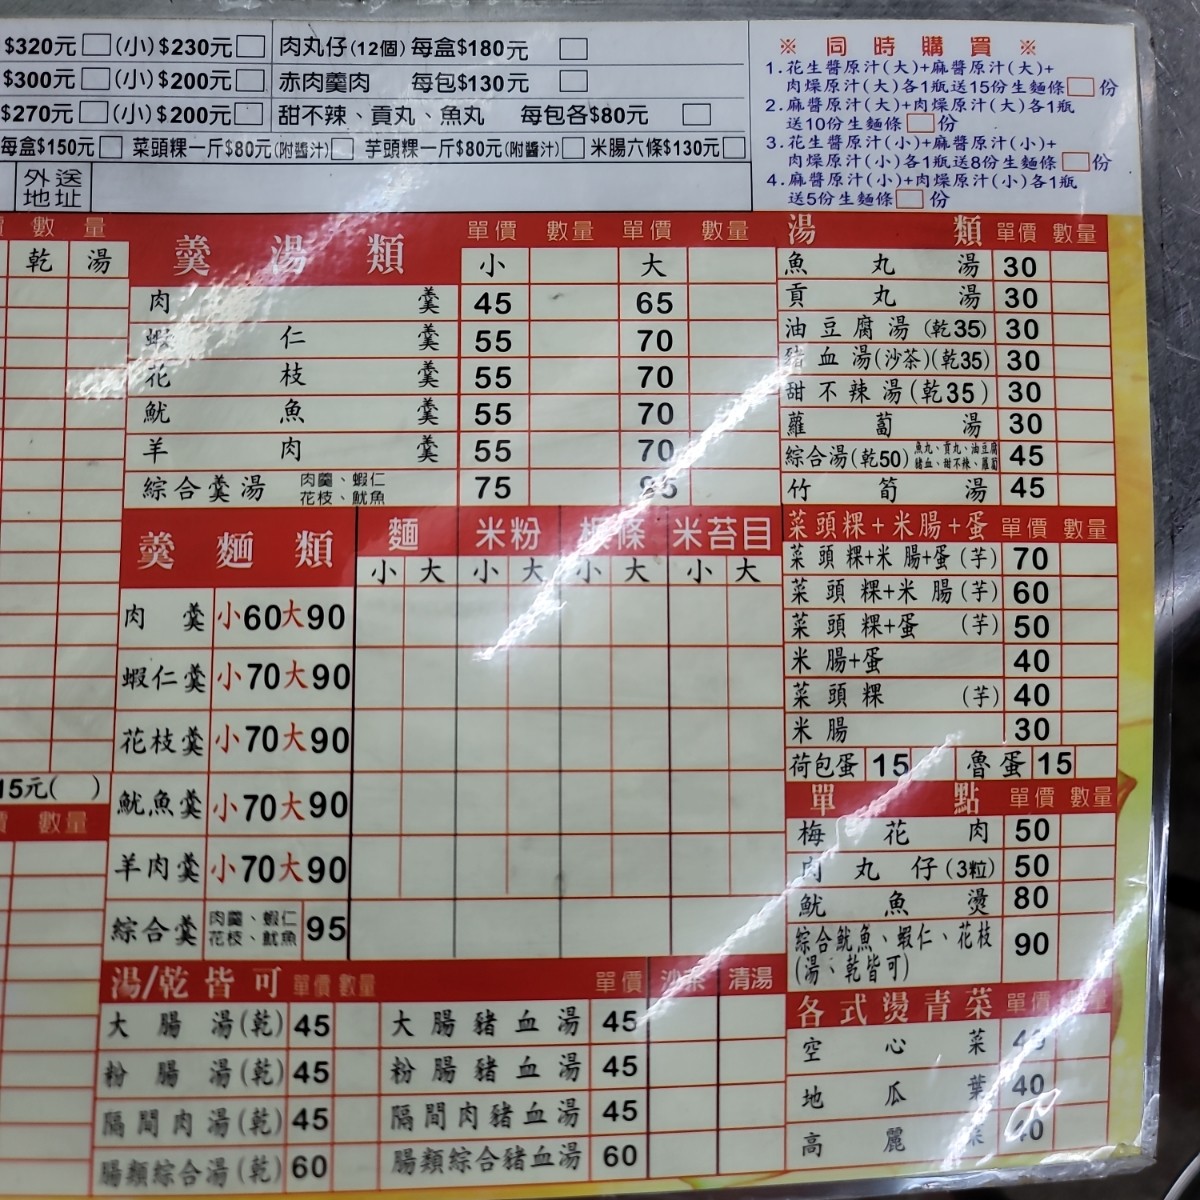 $320元 (小) $230元
$300元 (小) $200元
$270元 (小) $200元
肉丸仔(12個) 每盒$180元
赤肉羹肉 每包$130元
甜不辣、貢丸、魚丸 每包各$80元
每盒$150元 菜頭粿一斤$80元(附醬汁) 芋頭粿一斤$80元(附醬汁) 米腸六條$130元
外送地址
※ 同時購買 ※
1.花生醬原汁(大)+麻醬原汁(大)+
肉燥原汁(大)各1瓶送15份生麵條 份
2.麻醬原汁(大)+肉燥原汁(大)各1瓶
送10份生麵條 份
3.花生醬原汁(小)+麻醬原汁(小)+
肉燥原汁(小)各1瓶送8份生麵條 份
4.麻醬原汁(小)+肉燥原汁(小)各1瓶
送5份生麵條 份
數量
乾 湯
15元( )
數量
羹湯類 單價 數量 單價 數量
小 大
肉羹 45 65
蝦仁羹 55 70
花枝羹 55 70
魷魚羹 55 70
羊肉羹 55 70
綜合羹湯 肉羹、蝦仁 花枝、魷魚 75 95
羹麵類 麵 米粉 粄條 米苔目
小 大 小 大 小 大 小 大
肉羹 小60大90
蝦仁羹 小70大90
花枝羹 小70大90
魷魚羹 小70大90
羊肉羹 小70大90
綜合羹 肉羹、蝦仁 花枝、魷魚 95
湯/乾皆可 單價 數量 單價 沙茶 清湯
大腸湯(乾) 45 大腸豬血湯 45
粉腸湯(乾) 45 粉腸豬血湯 45
隔間肉湯(乾) 45 隔間肉豬血湯 45
腸類綜合湯(乾) 60 腸類綜合豬血湯 60
湯類 單價 數量
魚丸湯 30
貢丸湯 30
油豆腐湯(乾35) 30
豬血湯(沙茶)(乾35) 30
甜不辣湯(乾35) 30
蘿蔔湯 30
綜合湯(乾50) 魚丸、貢丸、油豆腐 豬血、甜不辣、蘿蔔 45
竹筍湯 45
菜頭粿+米腸+蛋 單價 數量
菜頭粿+米腸+蛋(芋) 70
菜頭粿+米腸(芋) 60
菜頭粿+蛋 (芋) 50
米腸+蛋 40
菜頭粿 (芋) 40
米腸 30
荷包蛋 15 魯蛋 15
單點 單價 數量
梅花肉 50
肉丸仔(3粒) 50
魷魚燙 80
綜合魷魚、蝦仁、花枝
(湯、乾皆可) 90
各式燙青菜 單價
空心菜
地瓜葉 40
高麗菜